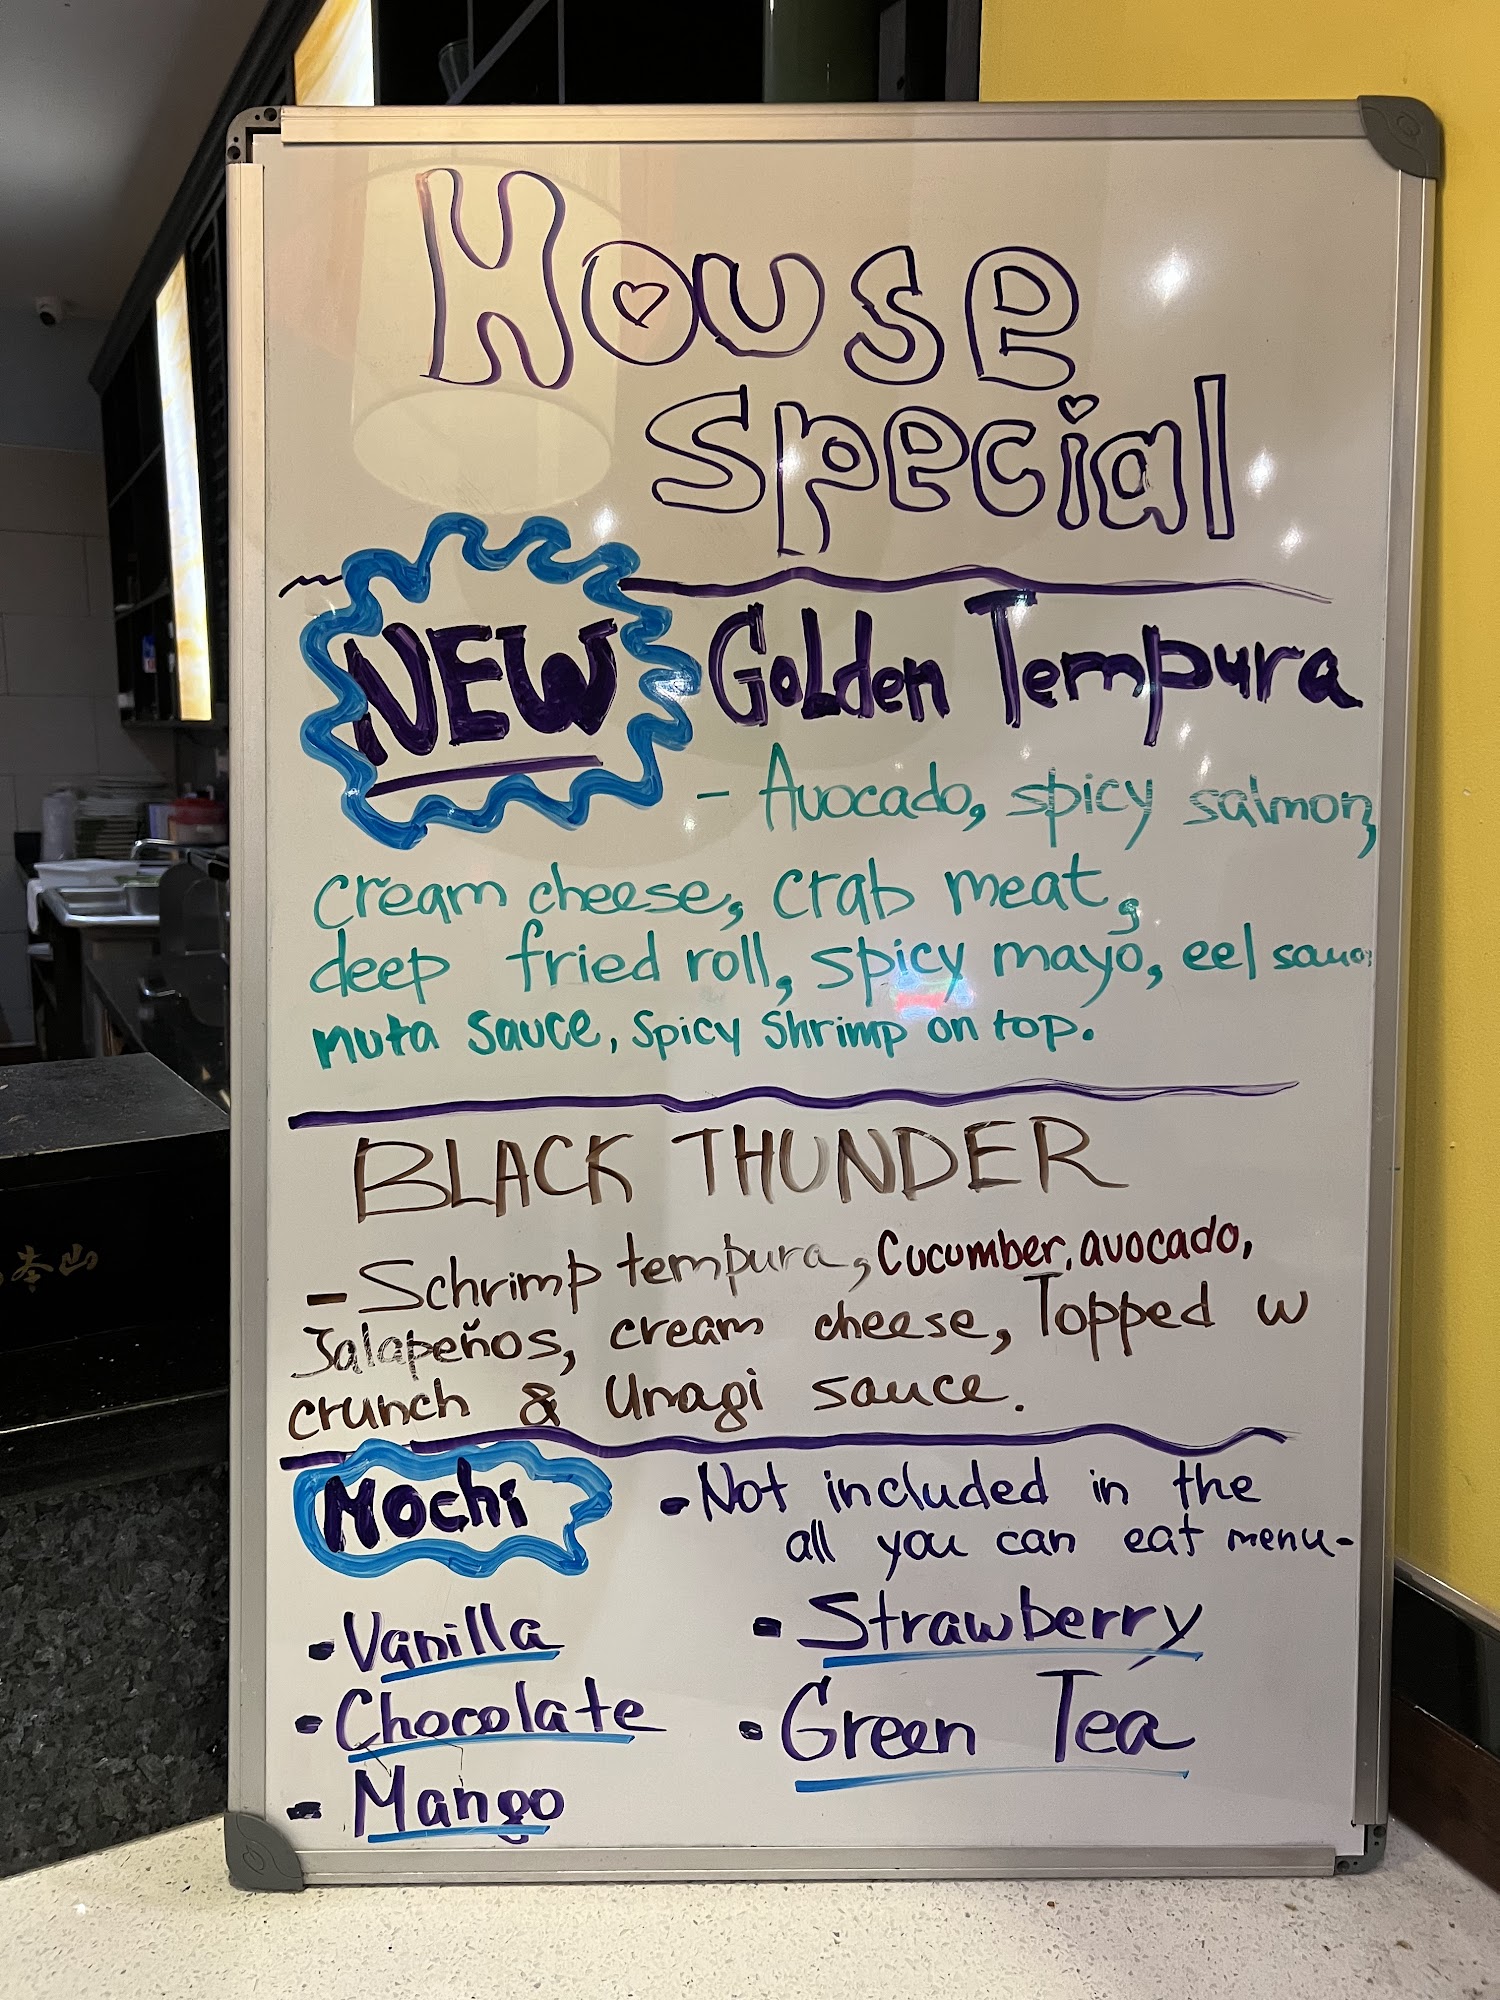 House
Special
NEW
Golden Tempura
- Avocado, spicy salmon,
cream cheese, crab meat,
deep fried roll, spicy mayo, eel sauce
muta sauce, spicy shrimp on top.
BLACK THUNDER
- Schrimp tempura, Cucumber, avocado,
Jalapeños, cream cheese, Topped w
crunch & Unagi sauce.
Mochi
- Not included in the
all you can eat menu-
- Vanilla
- Strawberry
- Chocolate
- Green Tea
- Mango